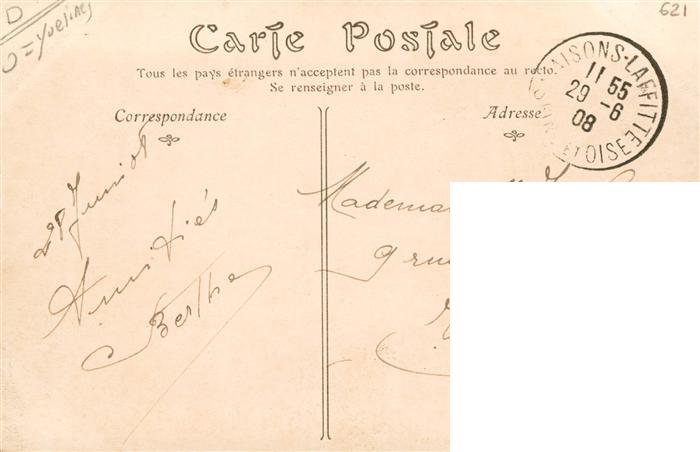 D
= Yvelines
621
Carte Postale
Tous les pays étrangers n'acceptent pas la correspondance au recto.
Se renseigner à la poste.
Correspondance
Adresse
MAISONS-LAFFITTE
11 55
29 -6
08
SEINE ET OISE
28 Juin 08
Amitiés
Berthe
9 rue